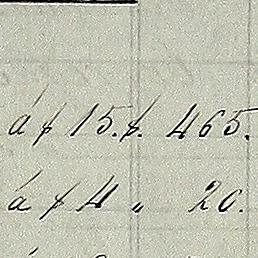 á $ 15. $. 465.
á $ 4 " 20.